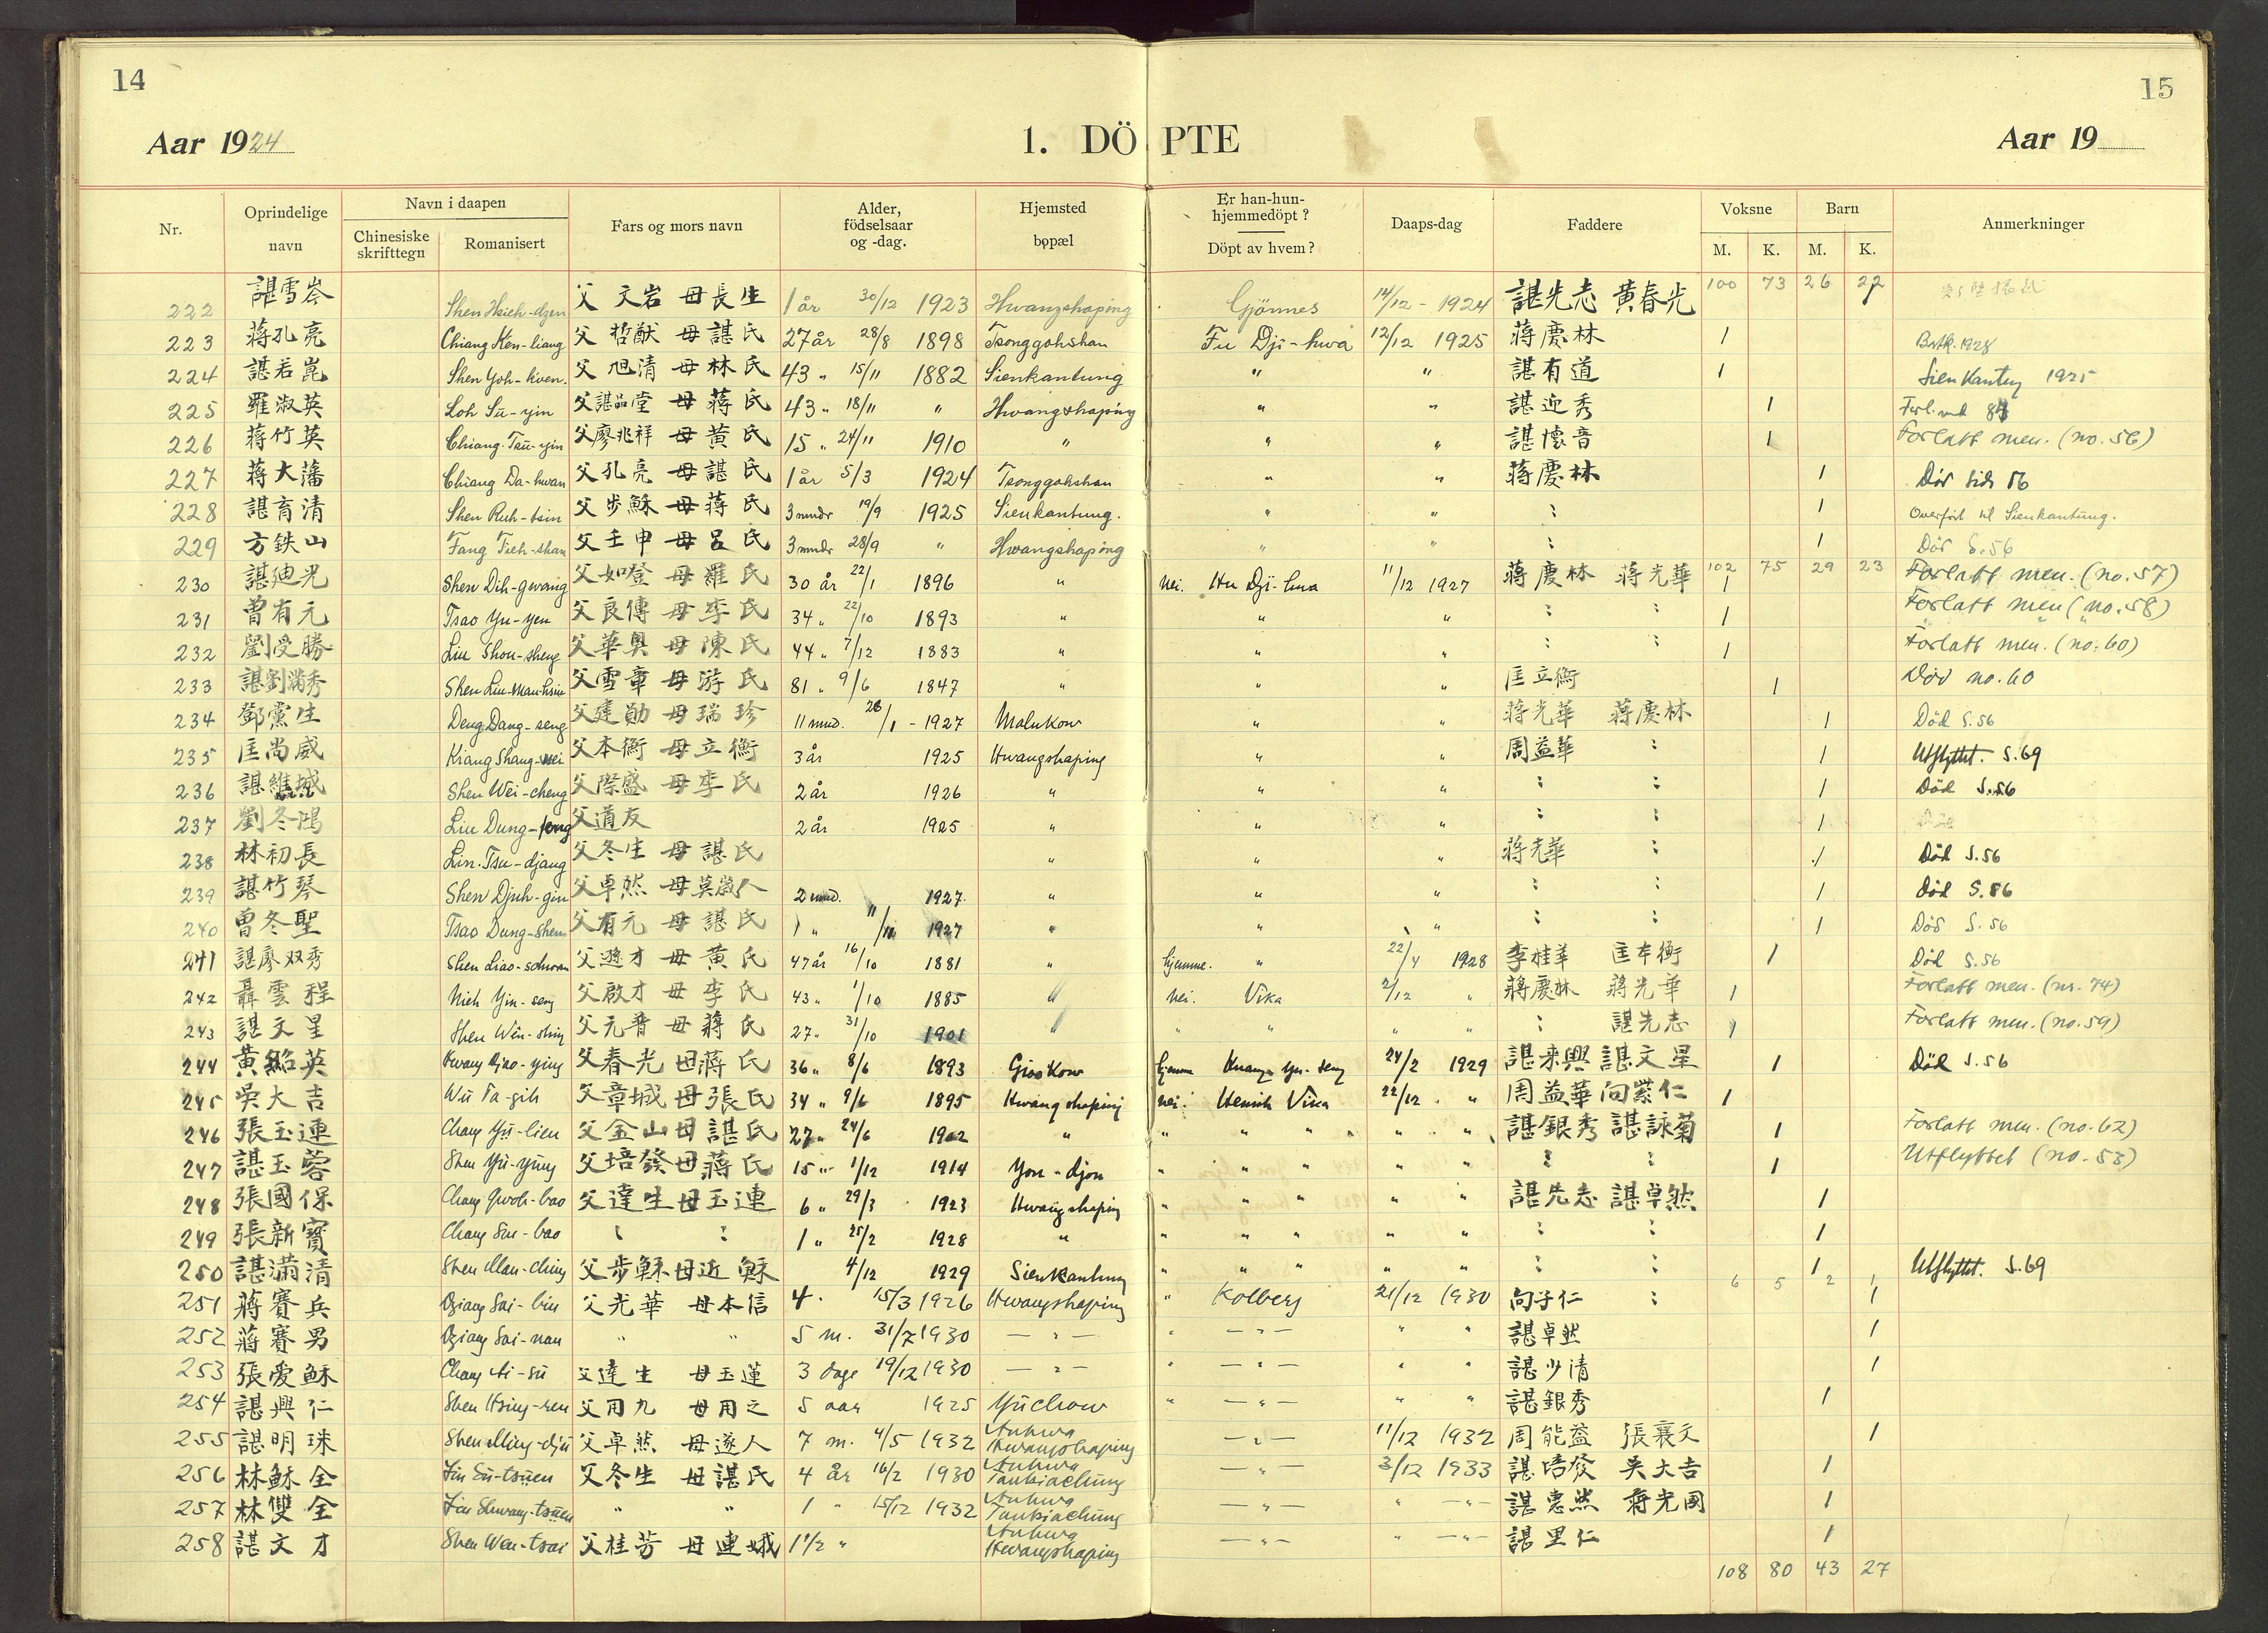 14
15
Aar 1924
1. DÖPTE
Aar 19
Nr.
Oprindelige navn
Navn i daapen
Chinesiske skrifttegn
Romanisert
Fars og mors navn
Alder, födselsaar og -dag.
Hjemsted bopæl
Er han-hun-hjemmedöpt ?
Döpt av hvem ?
Daaps-dag
Faddere
Voksne
M. K.
Barn
M. K.
Anmerkninger
222 諶雪岑 Shen Hsieh-dzen 父 文岩 母長生 1 år 30/12 1923 Hwangshaping Gjönnes 14/12 - 1924 諶先志 黄春光 100 73 26 22
223 蔣孔亮 Chiang Ken-liang 父 哲猷 母諶氏 27 år 28/8 1898 Tsonggohshan Fu Dji-hwa 12/12 1925 蔣慶林 1 1928
224 諶若崑 Shen Yoh-kwen. 父 旭清 母林氏 43 " 15/11 1882 Sienkantung " " 諶有道 1 Sienkantung 1925
225 羅淑英 Loh Su-yin 父諶品堂 母蔣氏 43 " 18/11 " Hwangshaping " " 諶迎秀 1
226 蔣竹英 Chiang Tsu-yin 父廖兆祥 母黄氏 15 " 24/11 1910 " " " 諶懷音 1 Forlatt men. (no. 56)
227 蔣大藩 Chiang Da-hwan 父孔亮 母諶氏 1 år 5/3 1924 Tsonggohshan " " 蔣慶林 1 Död side 56
228 諶育清 Shen Ruh-tsin 父步穌 母蔣氏 3 mndr 19/9 1925 Sienkantung. " " : 1 Overfört til Sienkantung.
229 方鉄山 Fang Tieh-shan 父壬申 母呂氏 3 mndr 28/9 " Hwangshaping " " : 1 Död S. 56
230 諶廸光 Shen Dih-gwang 父如登 母羅氏 30 år 22/1 1896 " nei. Hu Dji-hua 11/12 1927 蔣慶林 蔣光華 102 75 29 23 1 Forlatt men. (no. 57)
231 曽有元 Tsao Yu-yen 父良傳 母李氏 34 " 22/10 1893 " " " : : 1 Forlatt men (no. 58)
232 劉受勝 Liu Shou-sheng 父華奥 母陳氏 44 " 7/12 1883 " " " : : 1 Forlatt men. (no. 60)
233 諶劉滿秀 Shen Liu-man-hsiu 父雪章 母游氏 81 " 9/6 1847 " " " 匡立衡 1 Död no. 60
234 鄧黨生 Deng Dang-seng 父建勛 母瑞珍 11 mnd. 26/1 - 1927 Malukow " " 蔣光華 蔣慶林 1 Död S. 56
235 匡尚威 Kiang Shang-wei 父本衡 母立衡 3 år 1925 Hwangshaping " " 周益華 : 1 Utflyttet. S. 69
236 諶維城 Shen Wei-cheng 父際盛 母李氏 2 år 1926 " " " : : 1 Död S. 56
237 劉冬鴻 Liu Dung-feng 父道友 2 år 1925 " " " : : 1
238 林初長 Lin Tsu-djang 父冬生 母諶氏 " " " 蔣光華 : 1 Död S. 56
239 諶竹琴 Shen Djuh-gin 父卓然 母莫遂人 2 mnd. 1927 " " " : : 1 Död S. 86
240 曽冬聖 Tsao Dung-shen 父有元 母諶氏 1 " 11/11 1927 " " " : : 1 Död S. 56
241 諶廖双秀 Shen Liao-schwan 父遊才 母黄氏 47 år 16/10 1881 " hjemme. " 22/4 1928 李桂華 匡本衡 1 Död S. 56
242 聶雲程 Nieh Yin-seng 父啟才 母李氏 43 " 1/10 1885 " nei. Vika 2/12 " 蔣慶林 蔣光華 1 Forlatt men. (nr. 74)
243 諶文星 Shen Wen-shing 父元晉 母蔣氏 27 " 31/10 1901 " " " " " : 諶先志 1 Forlatt men. (no. 59)
244 黄紹英 Hwang Djao-ying 父春光 母蔣氏 36 " 8/6 1893 Giaokow hjemme 24/2 1929 諶来興 諶文星 1 Död S. 56
245 吳大吉 Wu Ta-gih 父章城 母張氏 34 " 9/6 1895 Hwangshaping nei. Henrik Vika 22/12 " 周益華 向紫仁 1
246 張玉連 Chang Yü-lien 父金山 母諶氏 27 " 24/6 1902 " " " " " " " 諶銀秀 諶詠菊 1 Forlatt men. (no. 62)
247 諶玉蓉 Shen Yü-yung 父培發 母蔣氏 15 " 1/12 1914 You-djou " " " " " " : : 1 Utflyttet (no. 53)
248 張國保 Chang Gwoh-bao 父達生 母玉連 6 " 29/3 1923 Hwangshaping " " " " " 諶先志 諶卓然 1
249 張新寳 Chang Sin-bao : : 1 " 25/2 1928 " " " " " " : : 1
250 諶滿清 Shen Man-ching 父步穌 母近穌 4/12 1929 Sienkantung " " " " " : : 1 Utflyttet. S. 69
6 5 2 1
251 蔣賽兵 Dziang Sai-bin 父光華 母本信 4 " 15/3 1926 Hwangshaping " Kolberg 21/12 1930 向子仁 : 1
252 蔣賽男 Dziang Sai-nan " " 5 m. 31/7 1930 — " — " — " — " " 諶卓然 1
253 張愛穌 Chang Ai-su 父達生 母玉蓮 3 dage 19/12 1930 — " — " — " — " " 諶少清 1
254 諶興仁 Shen Hsing-ren 父用九 母用之 5 aar 1925 Yüchow " — " — " " 諶銀秀 1
255 諶明珠 Shen Ming-djü 父卓然 母遂人 7 m. 4/5 1932 Anhwa Hwangshaping — " — 11/12 1932 周能益 張襄文 1
256 林穌全 Lin Su-tsüen 父冬生 母諶氏 4 år 16/2 1930 Anhwa Tankiachung — " — 3/12 1933 諶培發 吳大吉 1
257 林雙全 Lin Shwang-tsüen " " 1 " 15/12 1932 Anhwa Tankiachung — " — " — " — 諶惠然 蔣光國 1
258 諶文才 Shen Wen-tsai 父桂芳 母連娥 1 1/2 " Anhwa Hwangshaping — " — " — " — 諶里仁 1
108 80 43 27